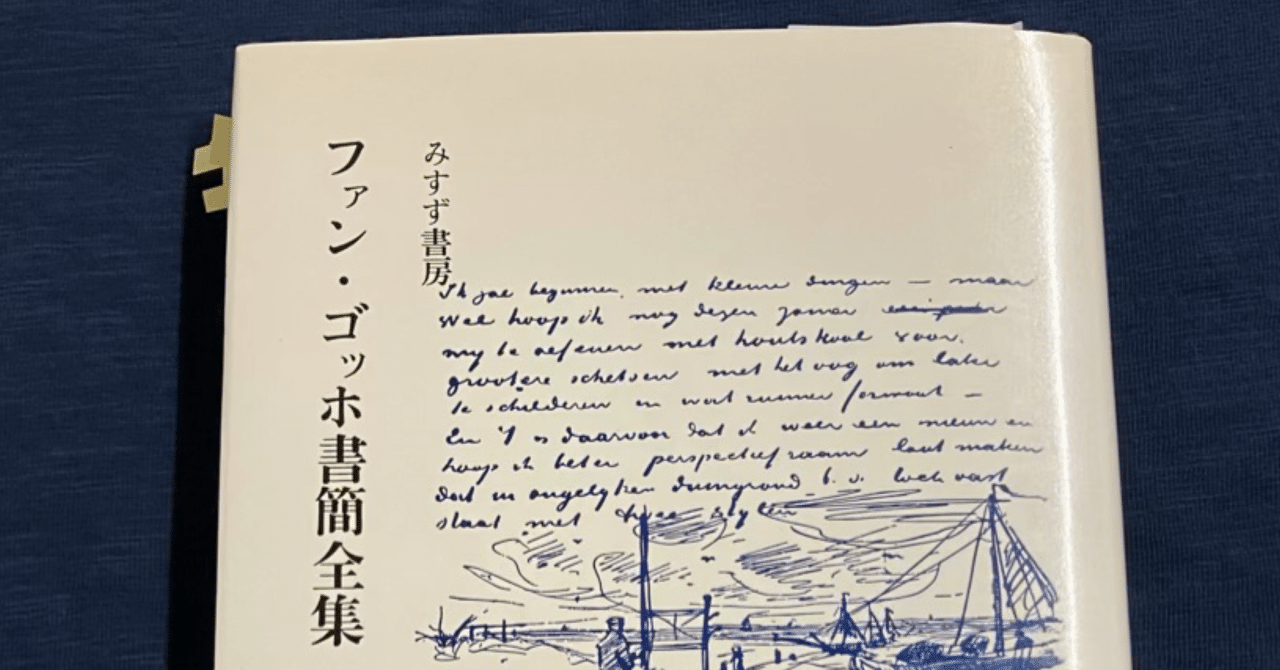 ファン・ゴッホ書簡全集
みすず書房
Ik zal beginnen met kleine dingen — maar
wel hoop ik nog dezen zomer
my te oefenen met houtskool voor
grootere schetsen met het oog om later
te schilderen in wat ruimer formaat —
En 't is daarvoor dat ik weer een nieuw en
hoop ik beter perspectiefraam laat maken
dat in ongelyken duingrond b.v. vast
staat met twee stylen